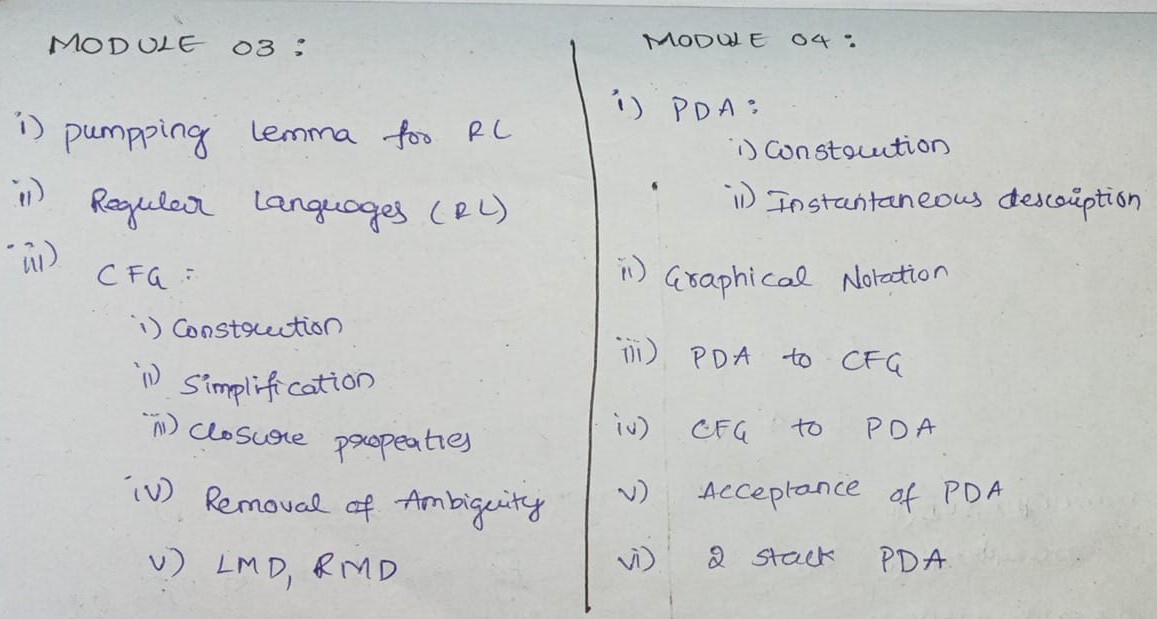 MODULE 03 :
i) pumpping lemma for RL
ii) Regular Languages (RL)
iii) CFG :
i) Construction
ii) Simplification
iii) closure properties
iv) Removal of Ambiguity
v) LMD, RMD
MODULE 04 :
i) PDA :
i) Construction
ii) Instantaneous description
ii) Graphical Notation
iii) PDA to CFG
iv) CFG to PDA
v) Acceptance of PDA
vi) 2 stack PDA